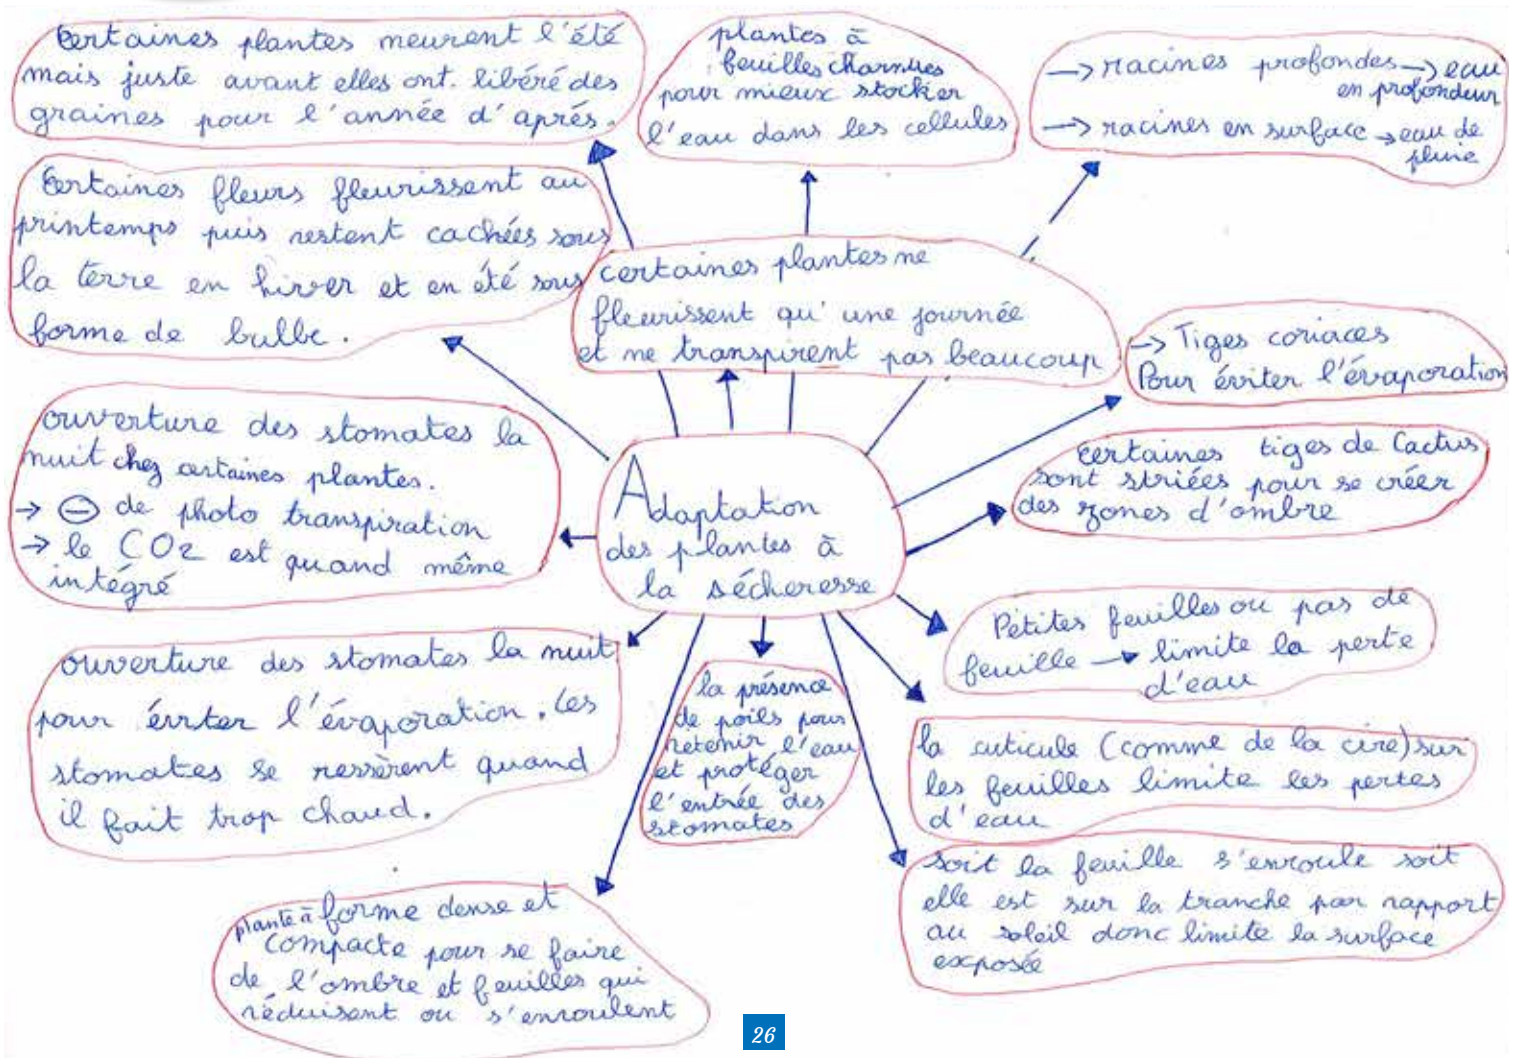 Certaines plantes meurent l'été
mais juste avant elles ont. libéré des
graines pour l'année d'aprés.
plantes à
feuilles charnues
pour mieux stocker
l'eau dans les cellules
→ racines profondes → eau
en profondeur
→ racines en surface → eau de
pluie
Certaines fleurs fleurissent au
printemps puis restent cachées sous
la terre en hiver et en été sous
forme de bulbe.
certaines plantes ne
fleurissent qu'une journée
et ne transpirent pas beaucoup
→ Tiges coriaces
Pour éviter l'évaporation
ouverture des stomates la
nuit chez certaines plantes.
→ ⊖ de photo transpiration
→ le CO2 est quand même
intégré
Adaptation
des plantes à
la sécheresse
certaines tiges de Cactus
sont striées pour se créer
des zones d'ombre
Petites feuilles ou pas de
feuille → limite la perte
d'eau
ouverture des stomates la nuit
pour éviter l'évaporation. Les
stomates se ressèrent quand
il fait trop chaud.
la présence
de poils pour
retenir l'eau
et protéger
l'entrée des
stomates
la cuticule (comme de la cire) sur
les feuilles limite les pertes
d'eau
soit la feuille s'enroule soit
elle est sur la tranche par rapport
au soleil donc limite la surface
exposée
plante à forme dense et
compacte pour se faire
de l'ombre et feuilles qui
réduisent ou s'enroulent
26